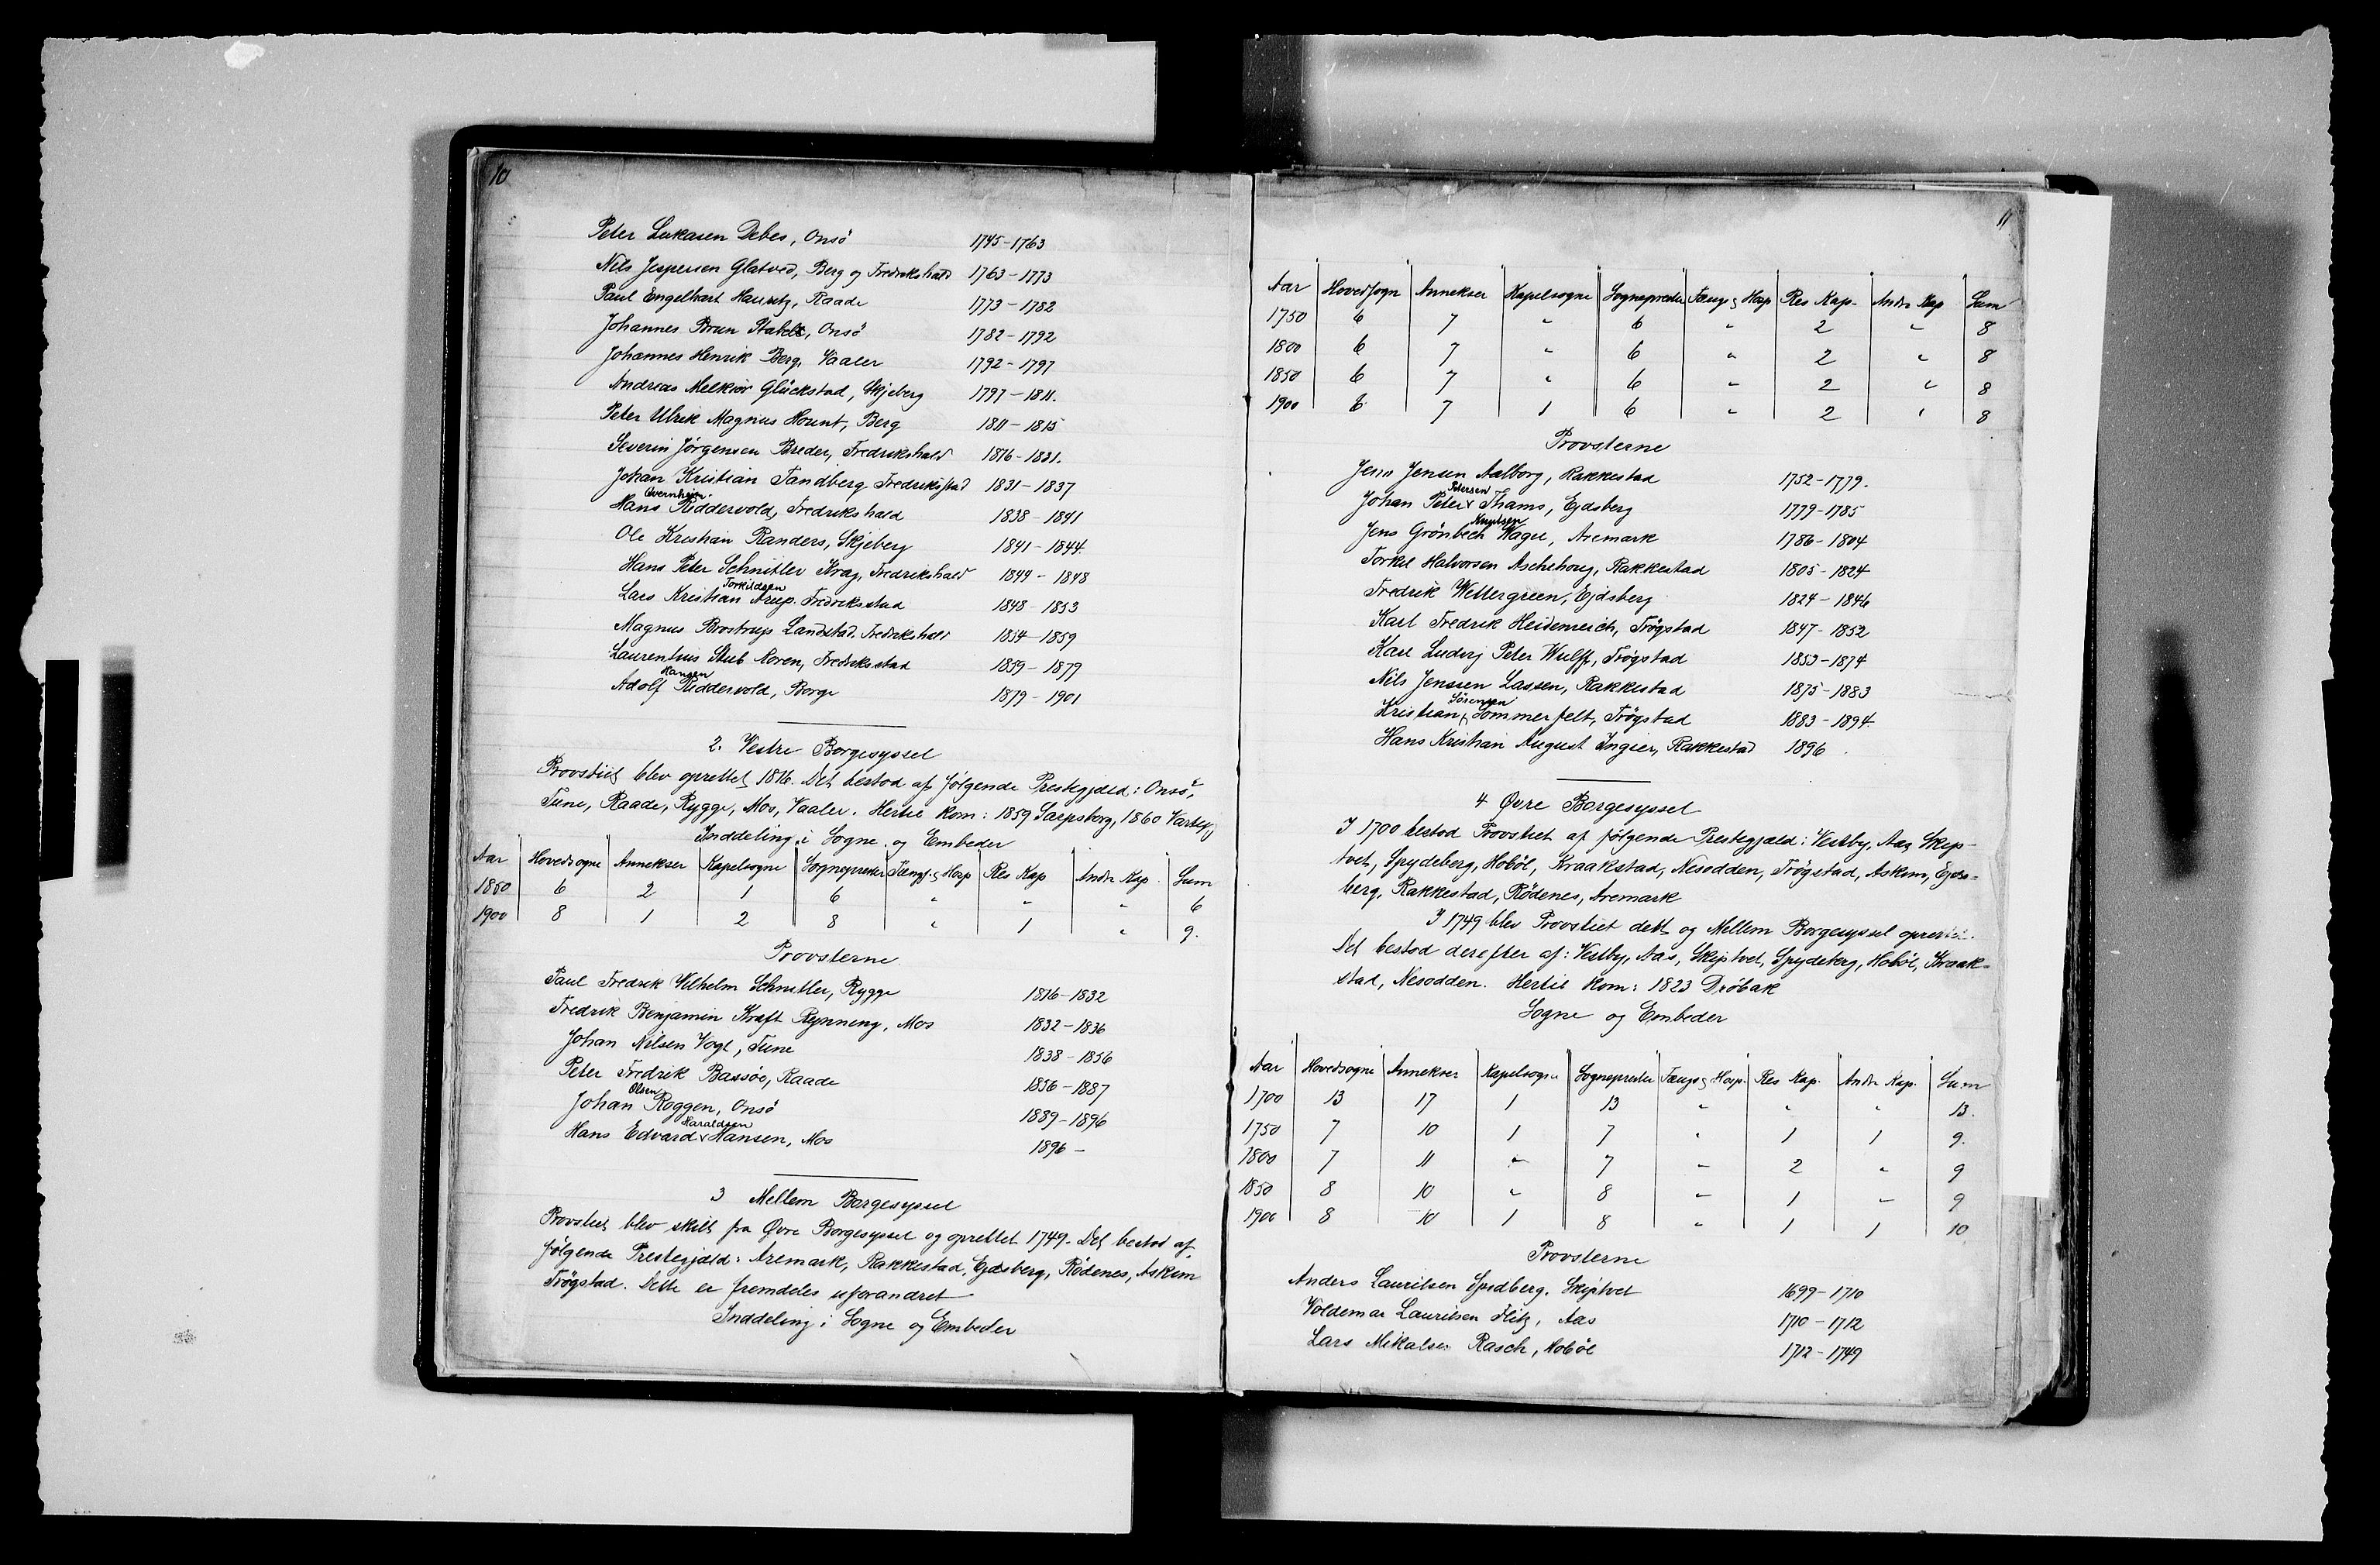 10
Peter Lukasen Debes, Onsö 1745-1763
Nils Jespersen Glatved, Berg og Fredrikshald 1763-1773
Paul Engelhart Hauritz, Raade 1773-1782
Johannes Brun, Onsö 1782-1792
Johannes Henrik Berg, Vaaler 1792-1797
Andreas Melkior Glückstad, Skjeberg 1797-1811.
Peter Ulrik Magnus Hount, Berg 1811-1815
Severin Jörgensen Breder, Fredrikshald 1816-1831.
Johan Kristian Tandberg Fredriksstad 1831-1837
Hans Riddervold, Fredrikshald 1838-1841
Ole Kristian Randers, Skjeberg 1841-1844
Hans Peter Schnitler Krag, Fredrikshald 1844-1848
Lars Kristian Torkildsen Arup. Fredriksstad 1848-1853
Magnus Brostrup Landstad. Fredrikshald 1854-1859
Laurentius Stub Koren, Fredriksstad 1859-1879
Adolf Hansen Riddervold, Borge 1879-1901
2. Vestre Borgesyssel
Provstiet blev oprettet 1816. Det bestod af følgende Prestegjæld: Onsö,
Tune, Raade, Rygge, Mos, Vaaler. Hertil kom: 1859 Sarpsborg, 1860 Varteig
Inddeling i Sogne og Embeder
Aar Hovedsogne Annekser Kapelsogne Sogneprester Fængs & Hosp Res Kap Andr Kap. Sum
1850 6 2 1 6 " " " 6
1900 8 1 2 8 " 1 " 9.
Provsterne
Paul Fredrik Vilhelm Schnitler, Rygge 1816-1832
Fredrik Benjamin Kraft Rynning, Mos 1832-1836
Johan Nilsen Vogt, Tune 1838-1856
Peter Fredrik Bassöe, Raade 1856-1887
Johan Olsen Roggen, Onsö 1889-1896
Hans Edvard Haraldsen Hansen, Mos 1896-
3 Mellem Borgesyssel
Provstiet blev skilt fra Øvre Borgesyssel og oprettet 1749. Det bestod af
følgende Prestegjæld: Aremark, Rakkestad, Ejdsberg, Rödenes, Askim
Trögstad. Dette er fremdeles uforandret
Inddeling i Sogne og Embeder
11
Aar Hovedsogn Annekser Kapelsogne Sogneprester Fængs & Hosp Res Kap. Andr Kap Sum
1750 6 7 " 6 " 2 " 8
1800 6 7 " 6 " 2 " 8
1850 6 7 " 6 " 2 " 8
1900 6 7 1 6 " 2 " 8
Provsterne
Jens Jensen Aalborg, Rakkestad 1752-1779.
Johan Peter Petersen Thams, Ejdsberg 1779-1785
Jens Grönbech Knudsen Wage, Aremark 1786-1804
Torkel Halvorsen Aschehoug, Rakkestad 1805-1824
Fredrik Wettergreen, Ejdsberg 1824-1846
Karl Fredrik Heidenreich, Trögstad 1847-1852
Karl Ludvig Peter Wulff, Trögstad 1853-1874
Nils Jenssen Lassen, Rakkestad 1875-1883
Kristian Sörensen Sommerfelt, Trögstad 1883-1894
Hans Kristian August Ingier, Rakkestad 1896
4 Øvre Borgesyssel
I 1700 bestod Provstiet af følgende Prestegjæld: Vestby, Aas, Skip-
tvet, Spydeberg, Hoböl, Kraakstad, Nesodden, Trögstad, Askim, Ejds-
berg, Rakkestad, Rödenes, Aremark
I 1749 blev Provstiet delt og Mellem Borgesyssel oprettet.
Det bestod derefter af: Vestby, Aas, Skiptvet, Spydeberg, Hoböl, Kraak-
stad, Nesodden. Hertil kom: 1823 Dröbak
Sogne og Embeder
Aar Hovedsogne Annekser Kapelsogne Sogneprester Fængs & Hosp. Res Kap. Andr Kap. Sum
1700 13 17 1 13 " " " 13.
1750 7 10 1 7 " 1 1 9.
1800 7 11 " 7 " 2 " 9
1850 8 10 " 8 " 1 " 9
1900 8 10 1 8 " 1 1 10
Provsterne
Anders Lauritsen Spidberg. Skiptvet 1699-1710
Voldemar Lauritsen Flitz, Aas 1710-1712
Lars Mikalsen Rasch, Hoböl 1712-1749